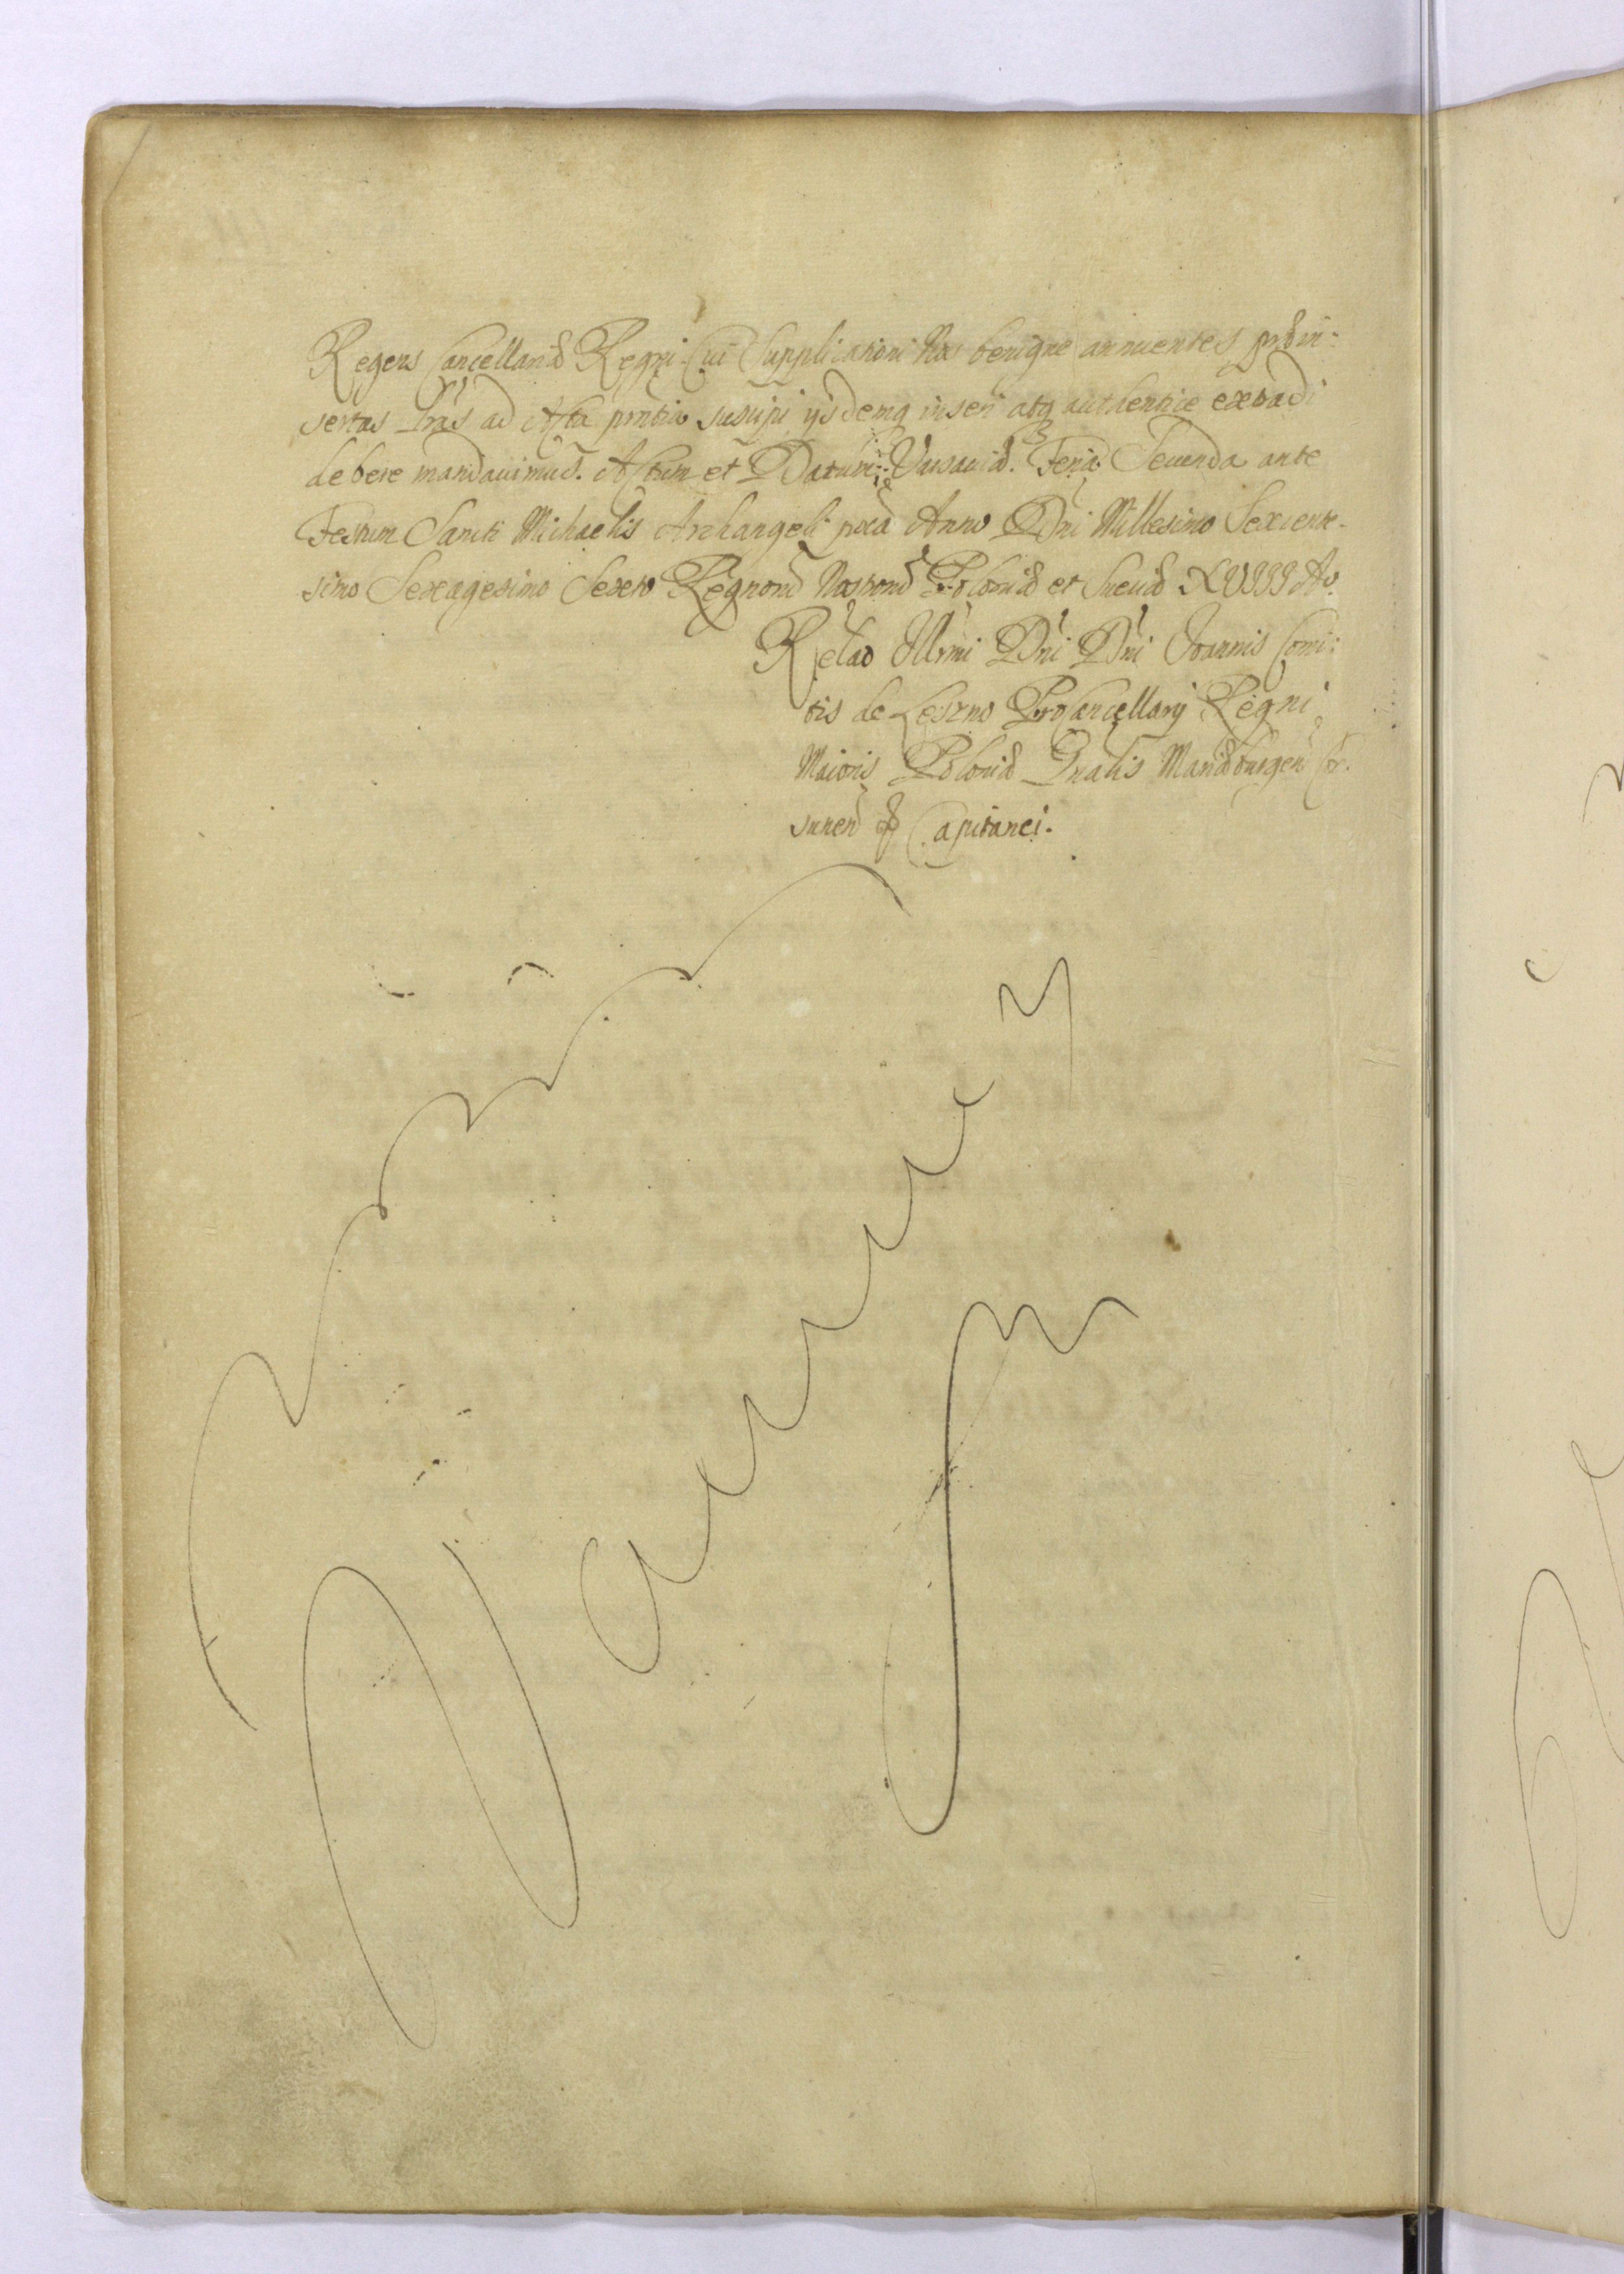 Regens Cancellariæ Regni. Cui Supplicationi Nos benigne annuentes præin-
sertas Lrãs ad Acta prñtia suscipi ijsdemq inseri atq authentice extradi
debere mandauimus. Actum et Datum Varsauiæ. Feria Secunda ante
Festum Sancti Michaelis Archangeli pxa Anno Dñi Millesimo Sexcente-
simo Sexagesimo Sexto Regnorũ Nostrorũ Poloniæ et Sueciæ XVIII Aº.
Relaõ Illrmi Dñi Dñi Joannis Comi:
tis de Leszno ProCancellarij Regni
Maioris Poloniæ Gnalis Mariæburgen Cor.
sunen & Capitanei.